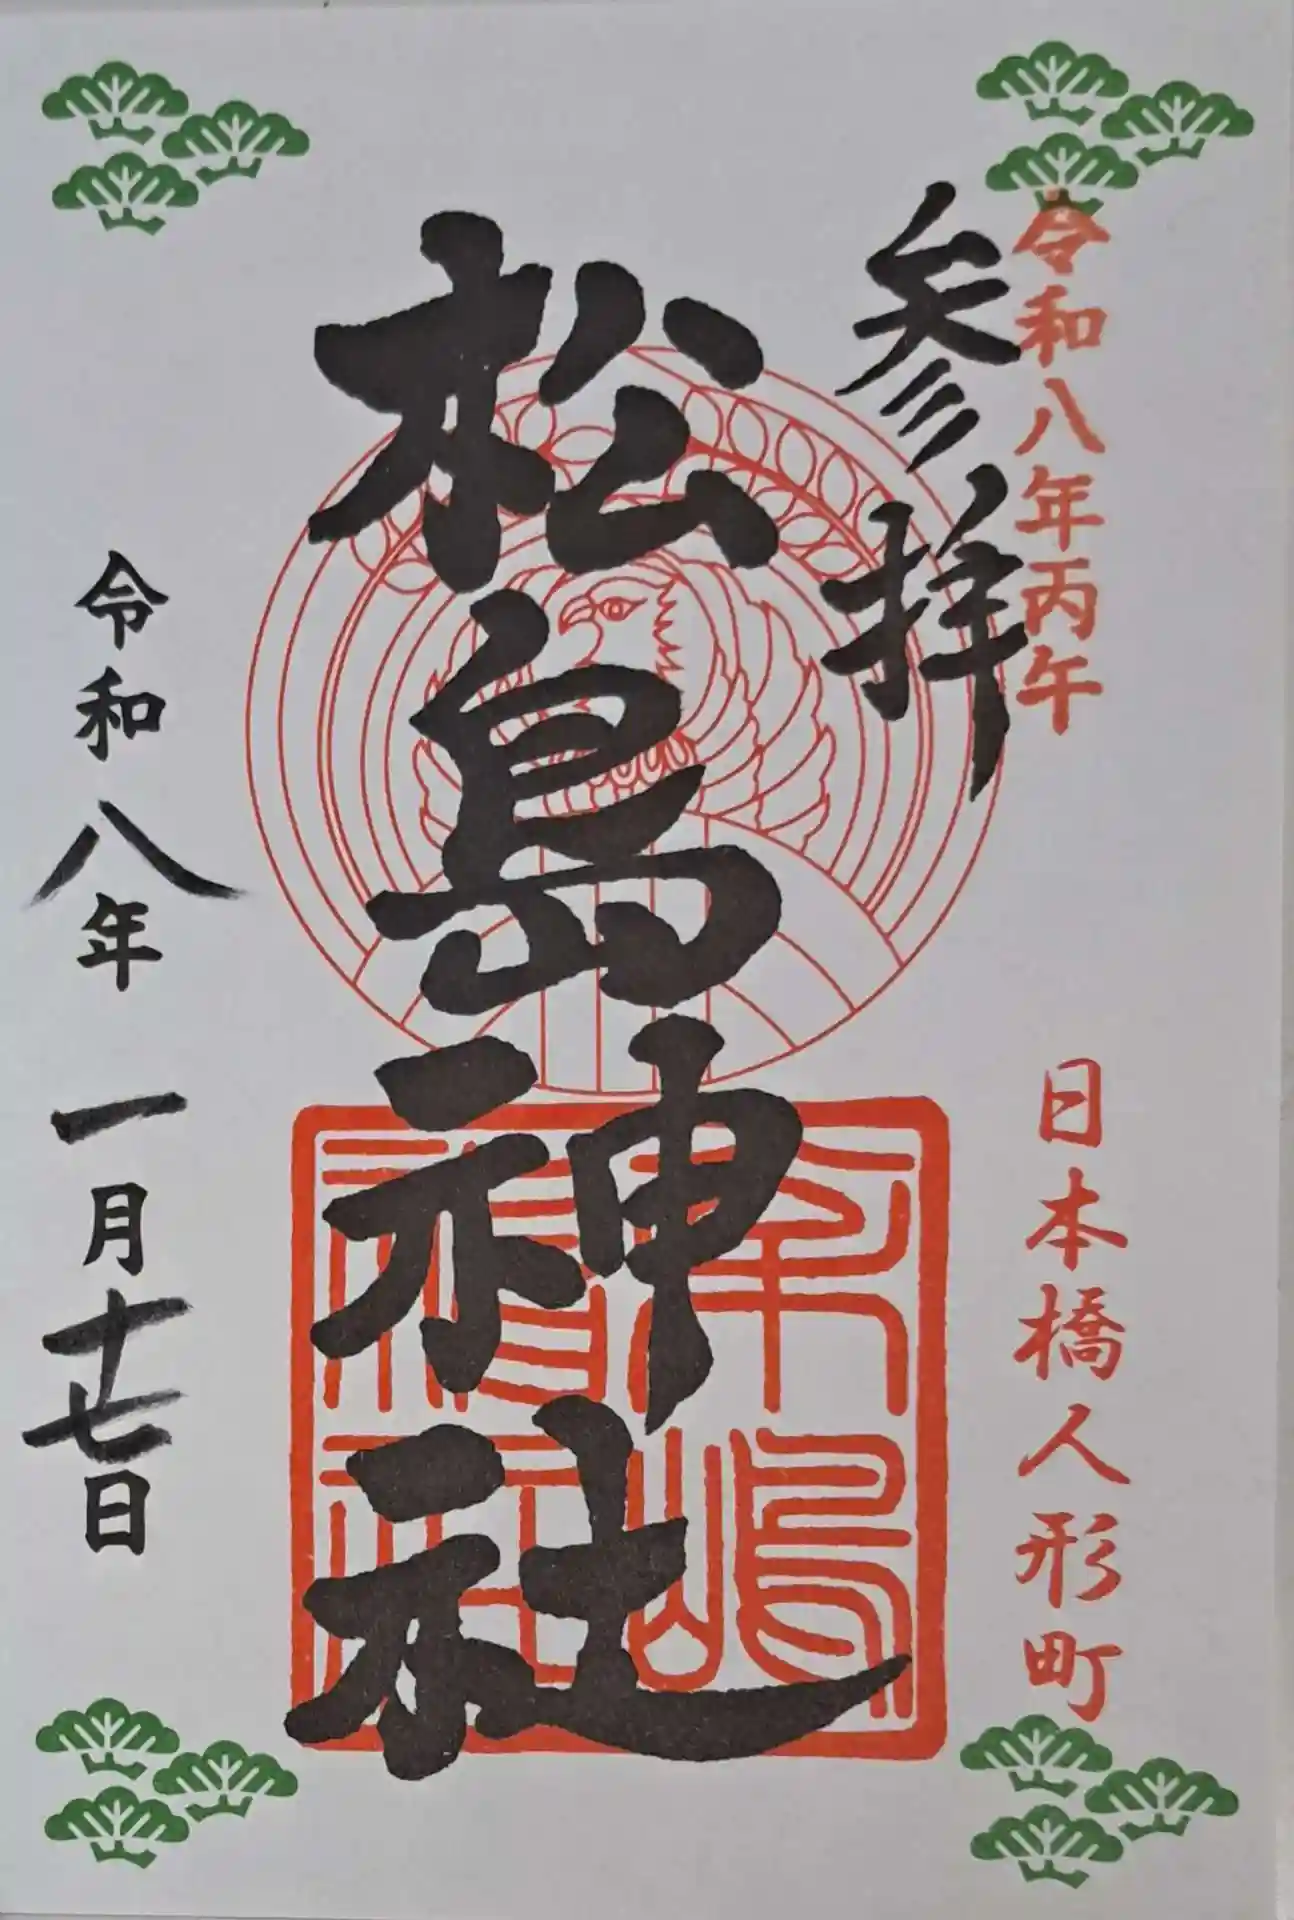 令和八年丙午
日本橋人形町
参拝
松島神社
令和八年 一月十七日